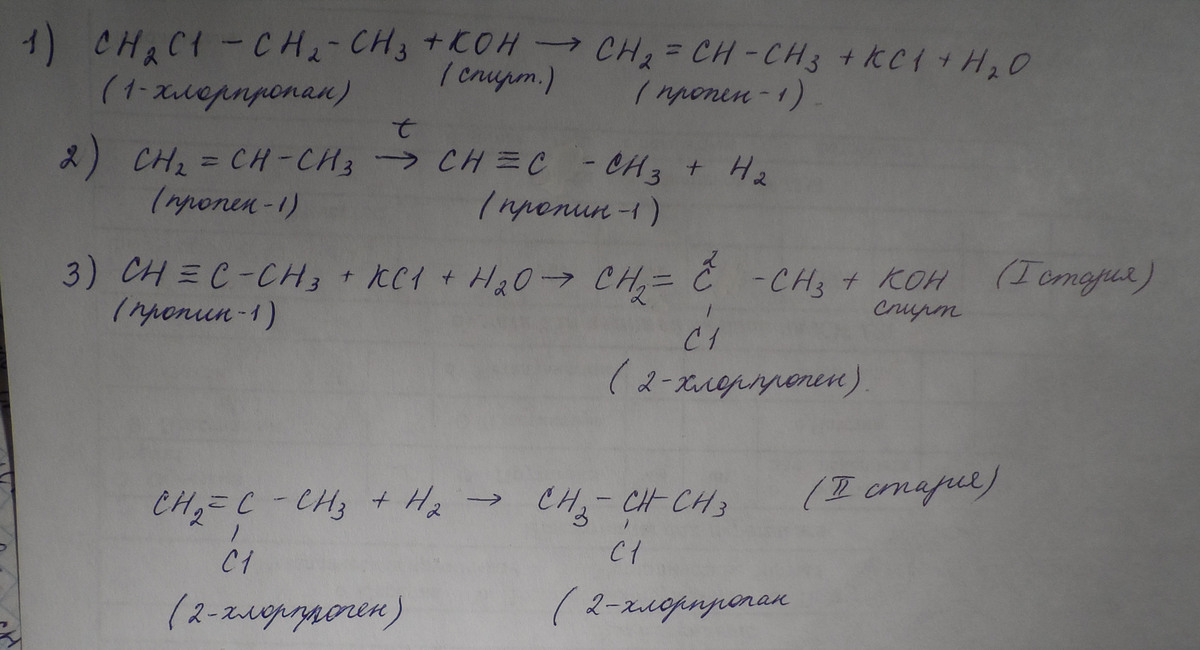 1) CH₂Cl - CH₂ - CH₃ + KOH → CH₂ = CH - CH₃ + KCl + H₂O
(1-хлорпропан) (спирт.) (пропен-1)
t
2) CH₂ = CH - CH₃ → CH ≡ C - CH₃ + H₂
(пропен-1) (пропин-1)
2
3) CH ≡ C - CH₃ + KCl + H₂O → CH₂ = C - CH₃ + KOH (I стадия)
(пропин-1) спирт
Cl
(2-хлорпропен).
CH₂ = C - CH₃ + H₂ → CH₃ - CH - CH₃ (II стадия)
Cl Cl
(2-хлорпропен) (2-хлорпропан